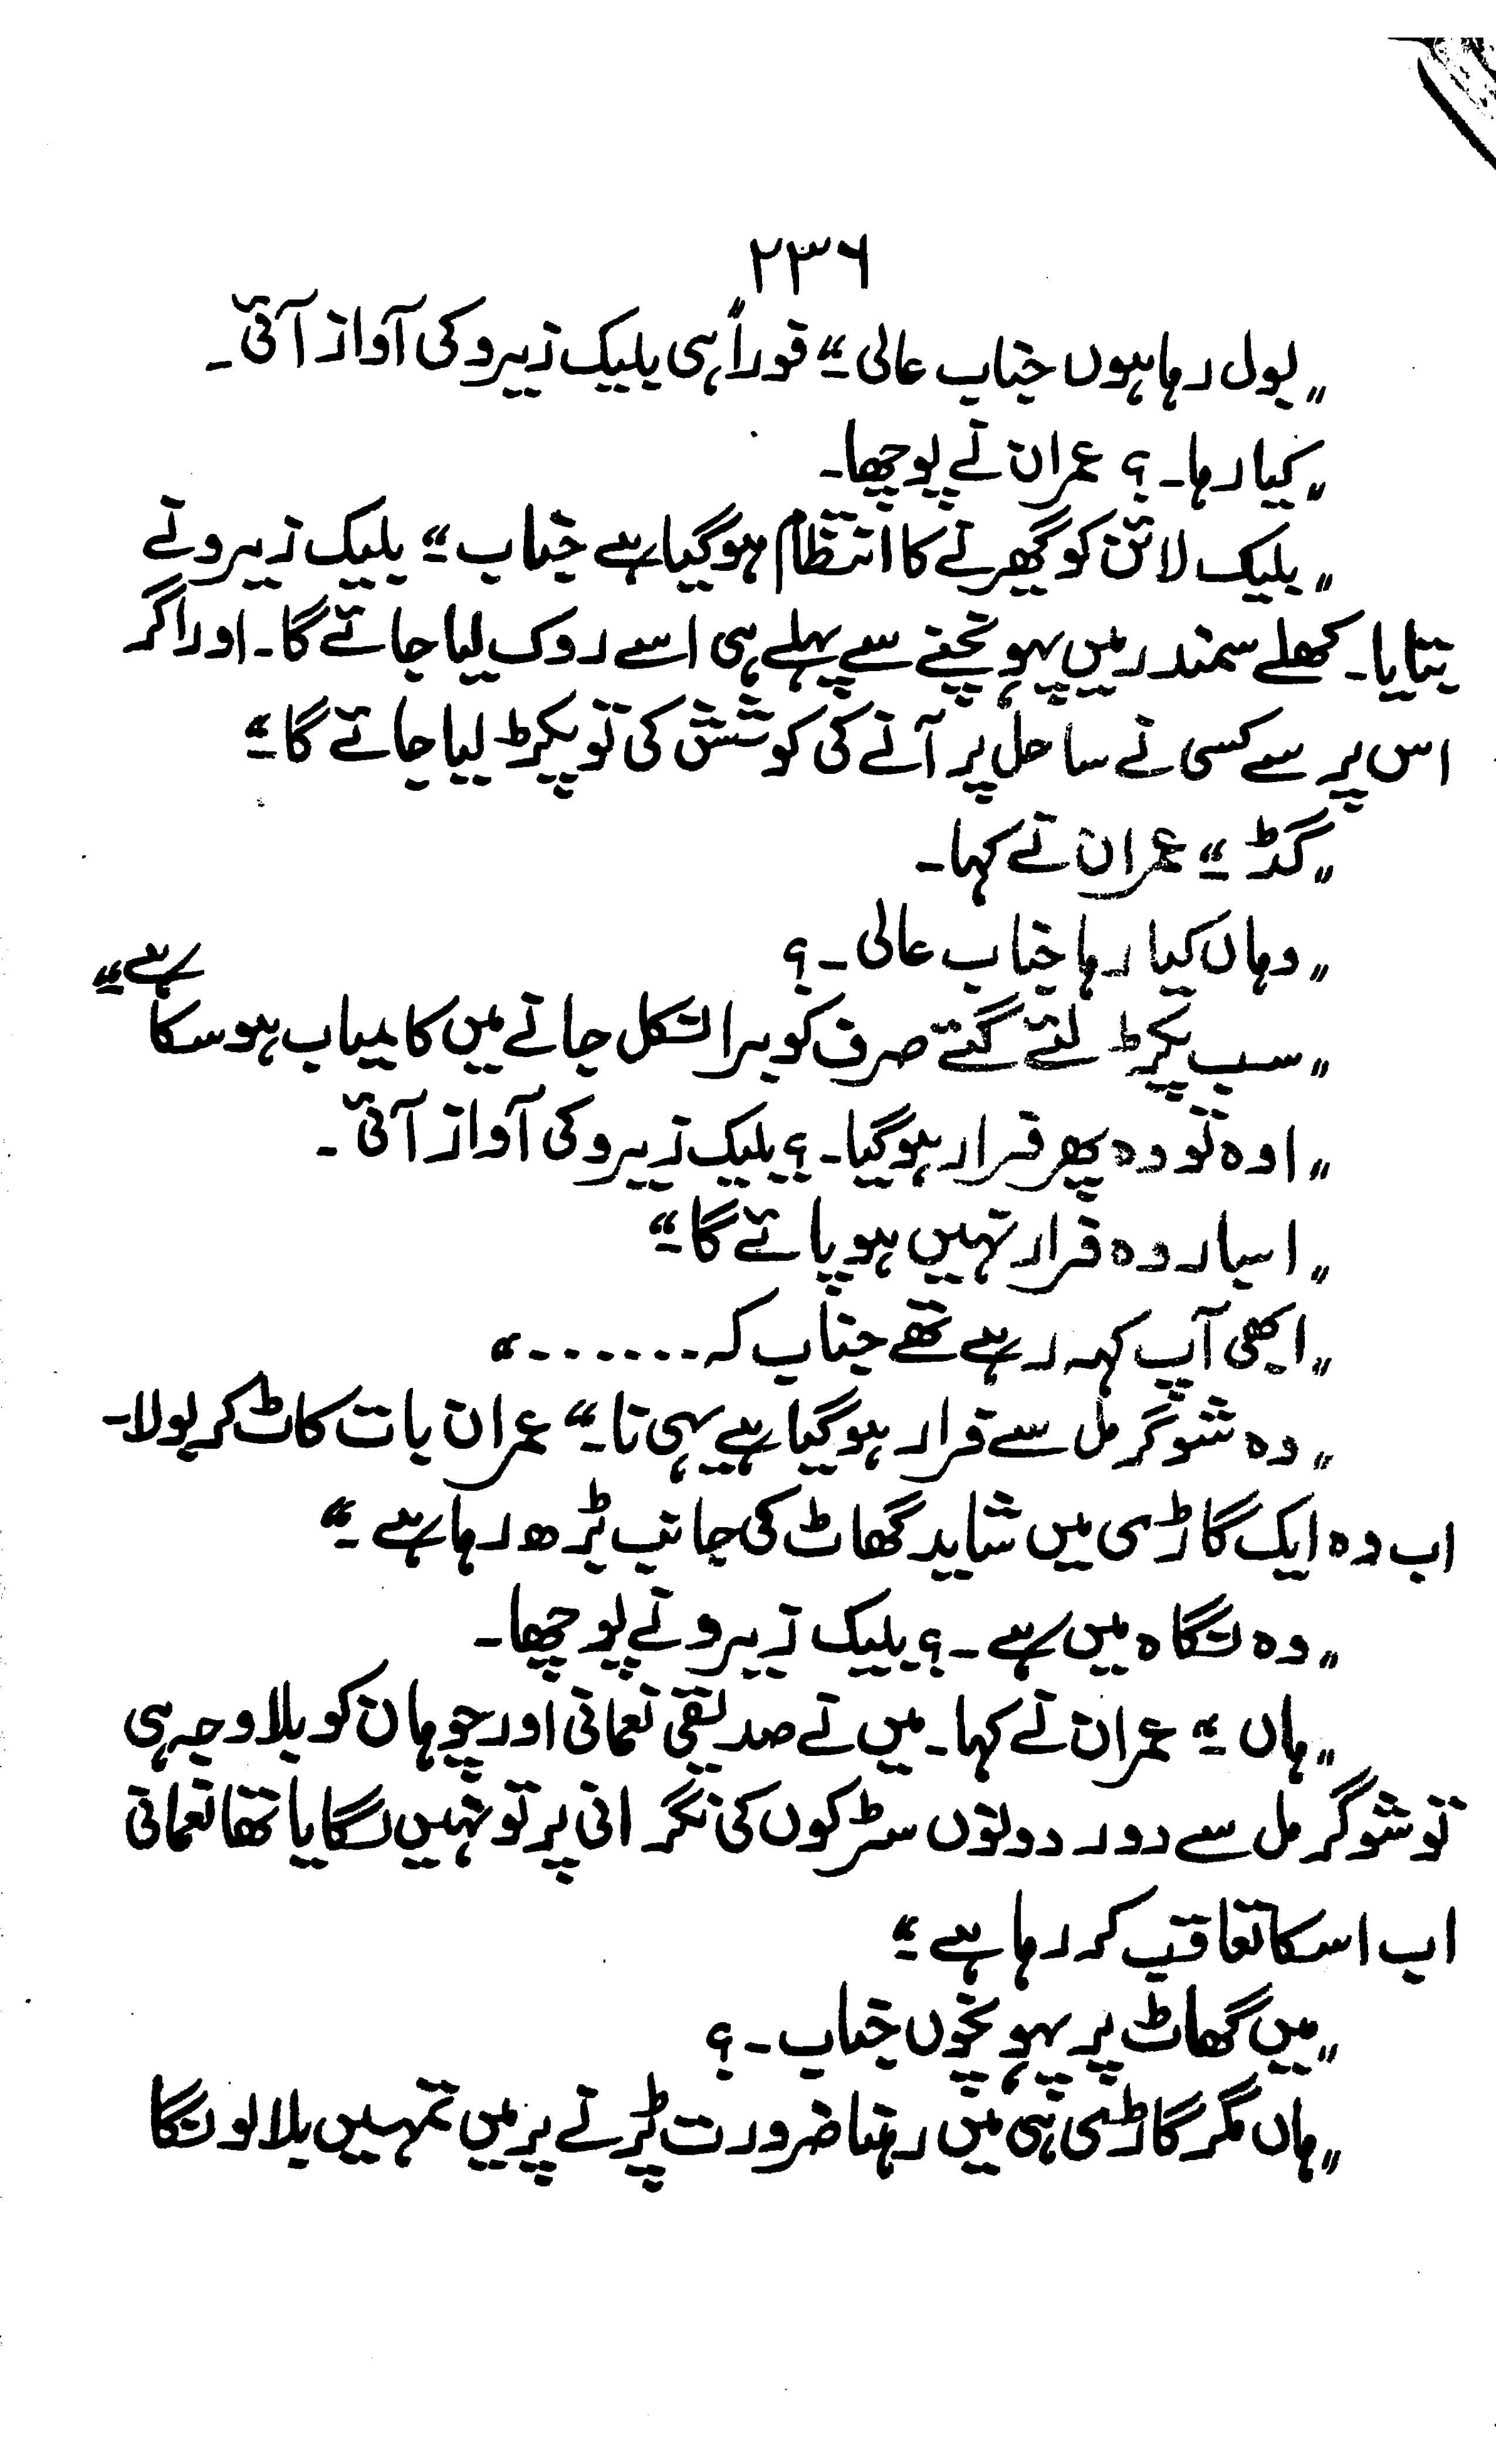 ۲۳۶
"بول رہا ہوں جناب عالی۔" فوراً ہی بلیک زیرو کی آواز آئی۔
"کیا رہا۔؟ عمران نے پوچھا۔
"بلیک لائن کو گھیرنے کا انتظام ہو گیا ہے جناب۔" بلیک زیرو نے
بتایا۔ کھلے سمندر میں پہونچنے سے پہلے ہی اسے روک لیا جائے گا۔ اور اگر
اس پر سے کسی نے ساحل پر آنے کی کوشش کی تو پکڑ لیا جائے گا۔"
"گڈ۔" عمران نے کہا۔
"وہاں کیا رہا جناب عالی۔؟
"سب پکڑ لئے گئے صرف کوبرا نکل جانے میں کامیاب ہو سکا ہے۔"
"اوہ تو وہ پھر فرار ہو گیا۔؟ بلیک زیرو کی آواز آئی۔
"اسبار وہ فرار نہیں ہو پائے گا۔"
"ابھی آپ کہہ رہے تھے جناب کہ ......."
"وہ شوگر مل سے فرار ہو گیا ہے یہی نا۔" عمران بات کاٹ کر بولا۔
اب وہ ایک گاڑی میں شاید گھاٹ کی جانب بڑھ رہا ہے۔"
"وہ نگاہ میں ہے۔؟ بلیک زیرو نے پوچھا۔
"ہاں۔" عمران نے کہا۔ میں نے صدیقی نعمانی اور چوہان کو بلا وجہ ہی
تو شوگر مل سے دور دونوں سڑکوں کی نگرانی پر تو نہیں لگایا تھا نعمانی
اب اسکا تعاقب کر رہا ہے۔"
"میں گھاٹ پر پہونچوں جناب۔؟
"ہاں مگر گاڑی ہی میں رہنا ضرورت پڑنے پر میں تمہیں بلا لونگا